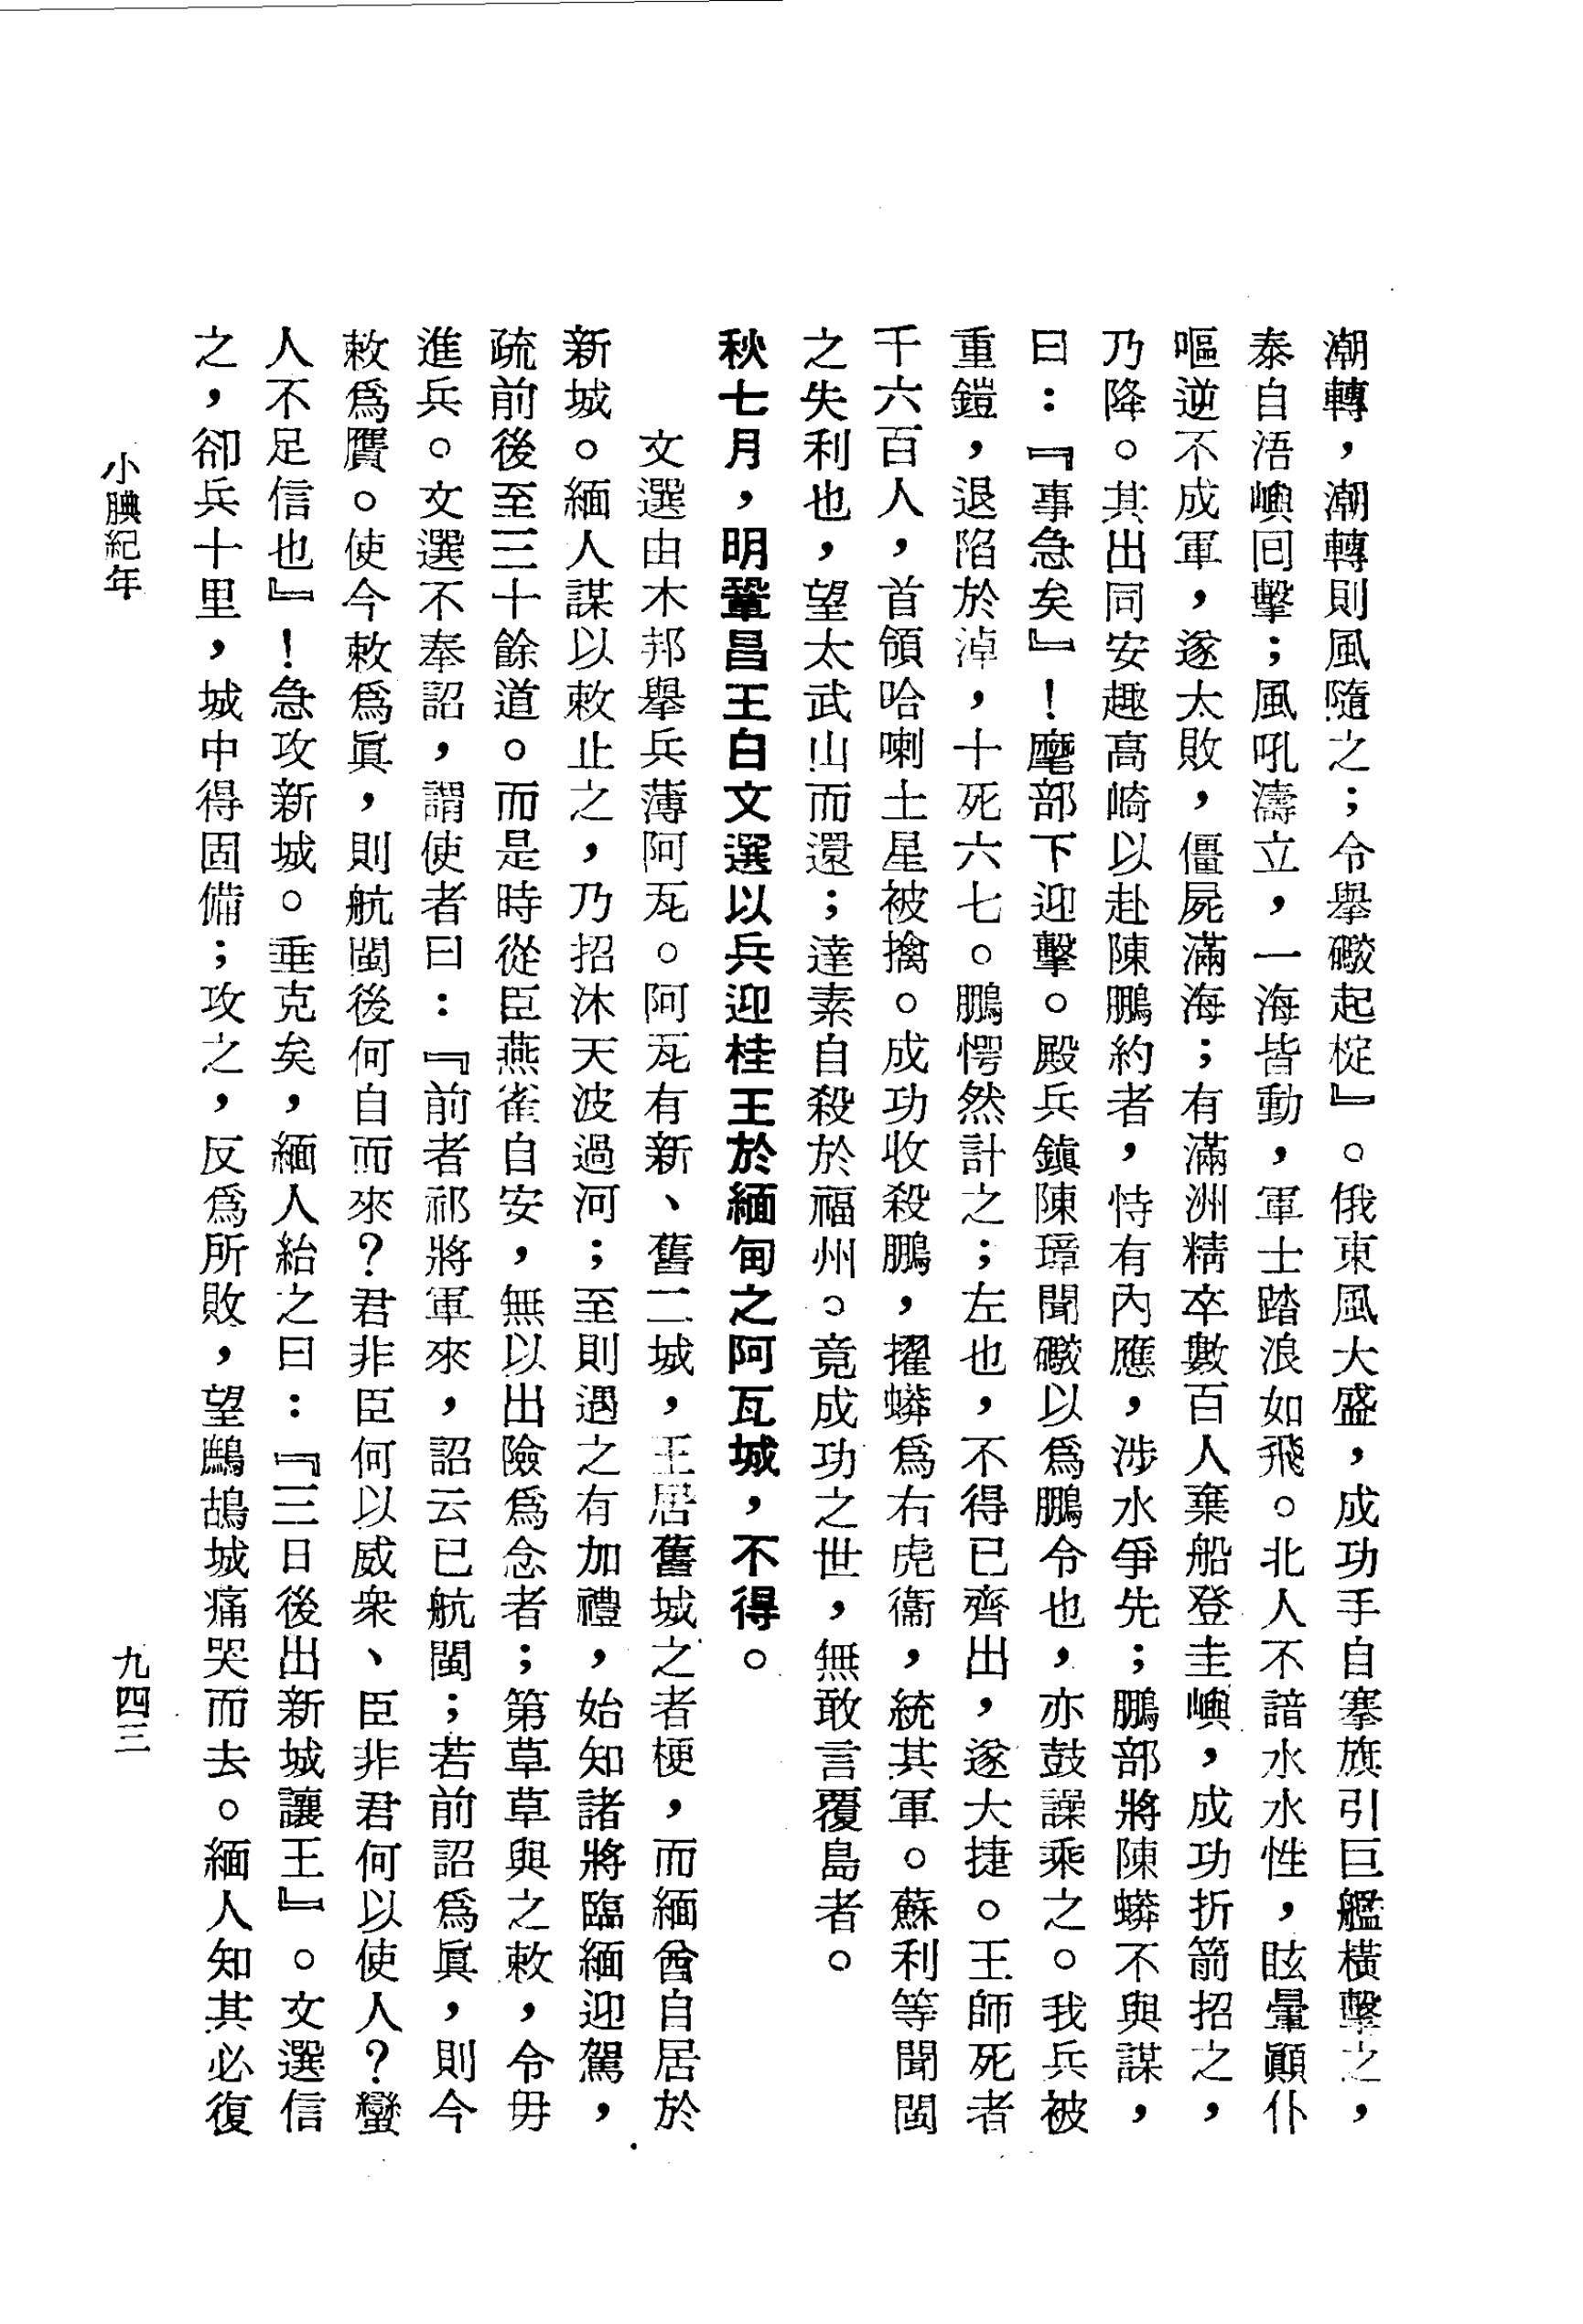 潮轉，潮轉則風隨之；令舉礮起椗』。俄東風大盛，成功手自搴旗引巨艦橫擊之，
泰自浯嶼回擊；風吼濤立，一海皆動，軍士踏浪如飛。北人不諳水水性，眩暈顚仆
嘔逆不成軍，遂太敗，僵屍滿海；有滿洲精卒數百人棄船登圭嶼，成功折箭招之，
乃降。其出同安趣高崎以赴陳鵬約者，恃有內應，涉水爭先；鵬部將陳蟒不與謀，
曰：『事急矣』！麾部下迎擊。殿兵鎮陳璋聞礮以爲鵬令也，亦鼓譟乘之。我兵被
重鎧，退陷於淖，十死六七。鵬愕然計之；左也，不得已齊出，遂大捷。王師死者
千六百人，首領哈喇土星被擒。成功收殺鵬，擢蟒爲右虎衞，統其軍。蘇利等聞閩
之失利也，望太武山而還；達素自殺於福州。竟成功之世，無敢言覆島者。
秋七月，明鞏昌王白文選以兵迎桂王於緬甸之阿瓦城，不得。
文選由木邦舉兵薄阿瓦。阿瓦有新、舊二城，王居舊城之者梗，而緬酋自居於
新城。緬人謀以敕止之，乃招沐天波過河；至則遇之有加禮，始知諸將臨緬迎駕，
疏前後至三十餘道。而是時從臣燕雀自安，無以出險爲念者；第草草與之敕，令毋
進兵。文選不奉詔，謂使者曰：『前者祁將軍來，詔云已航閩；若前詔爲眞，則今
敕爲贋。使今敕爲眞，則航閩後何自而來？君非臣何以威衆、臣非君何以使人？蠻
人不足信也』！急攻新城。垂克矣，緬人紿之曰：『三日後出新城讓王』。文選信
之，卻兵十里，城中得固備；攻之，反爲所敗，望鷓鴣城痛哭而去。緬人知其必復
小腆紀年
九四三